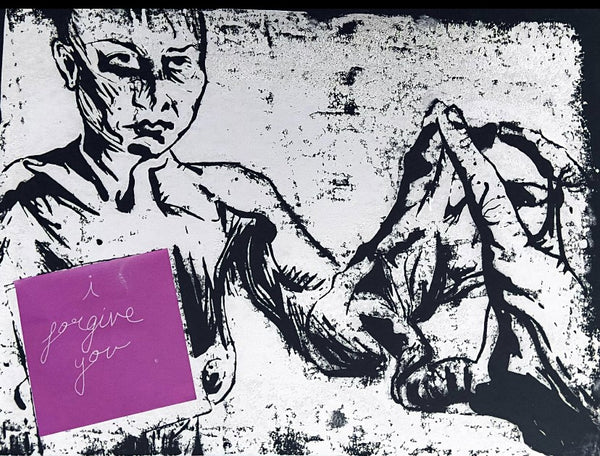 i
forgive
you